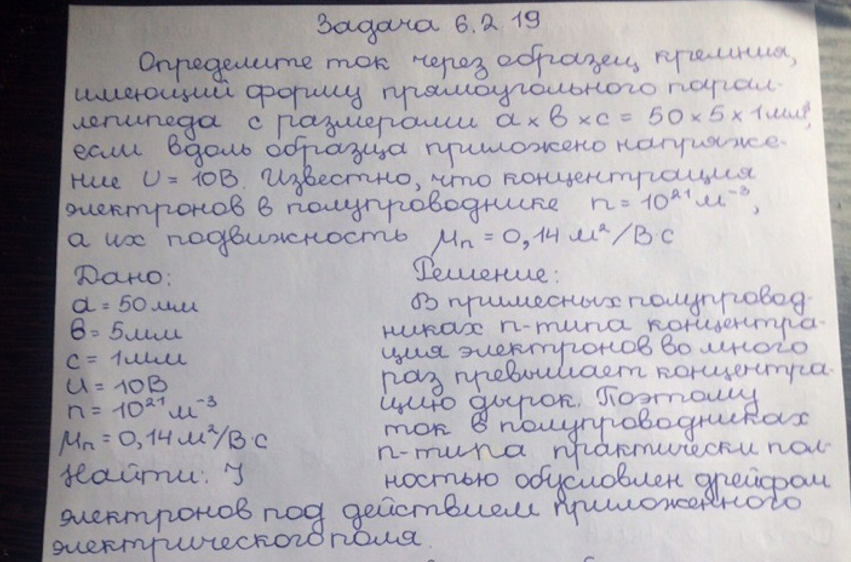 Задача 6.2.19
Определите ток через образец кремния,
имеющий форму прямоугольного парал-
лепипеда с размерами а × в × с = 50 × 5 × 1 мм³,
если вдоль образца приложено напряже-
ние U = 10В. Известно, что концентрация
электронов в полупроводнике n = 10²¹ м⁻³,
а их подвижность μn = 0,14 м²/В с
Дано:
а = 50 мм
в = 5 мм
с = 1 мм
U = 10В
n = 10²¹ м⁻³
μn = 0,14 м²/В с
Найти: J
Решение:
В примесных полупровод-
никах n-типа концентра-
ция электронов во много
раз превышает концентра-
цию дырок. Поэтому
ток в полупроводниках
n-типа практически пол-
ностью обусловлен дрейфом
электронов под действием приложенного
электрического поля.